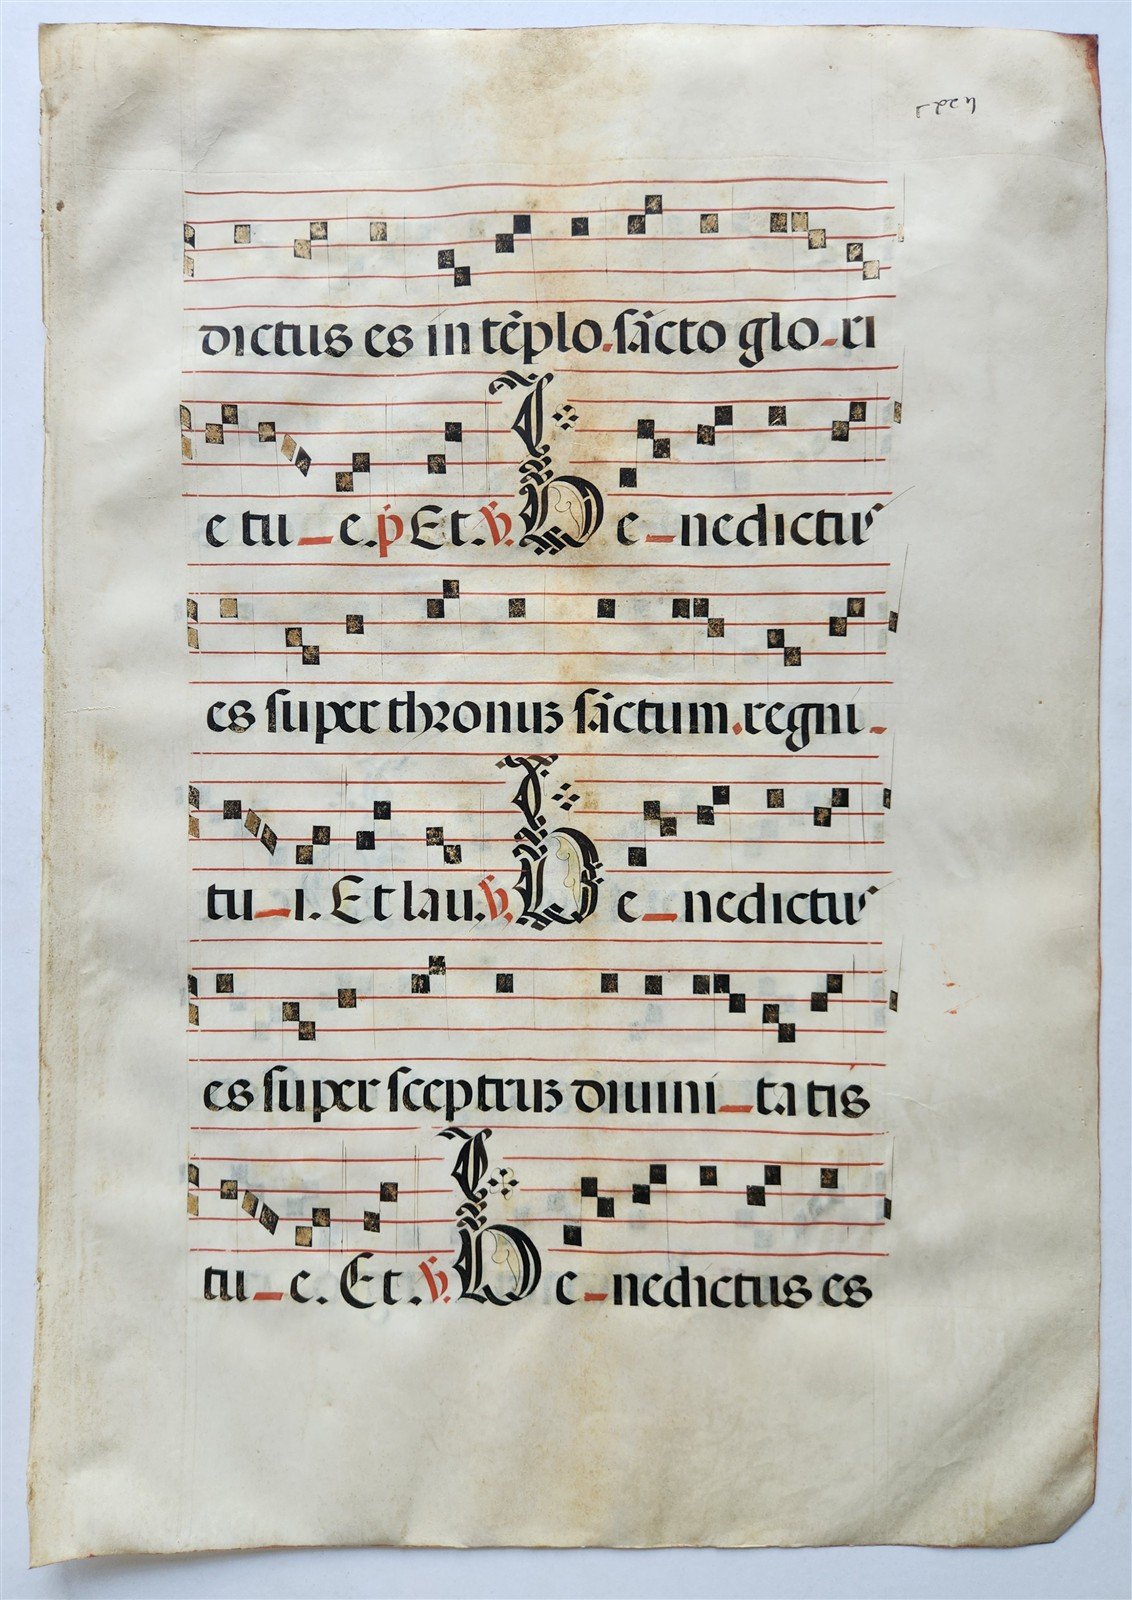 dictus es in tēplo. sācto glo_ri
e tu_e. p Et. ℣. Be_nedictus
es super thronuʒ sāctum. regni_
tu_i. Et lau. ℣. Be_nedictus
es super sceptruʒ diuini_tatis
tu_e. Et. ℣. Be_nedictus es